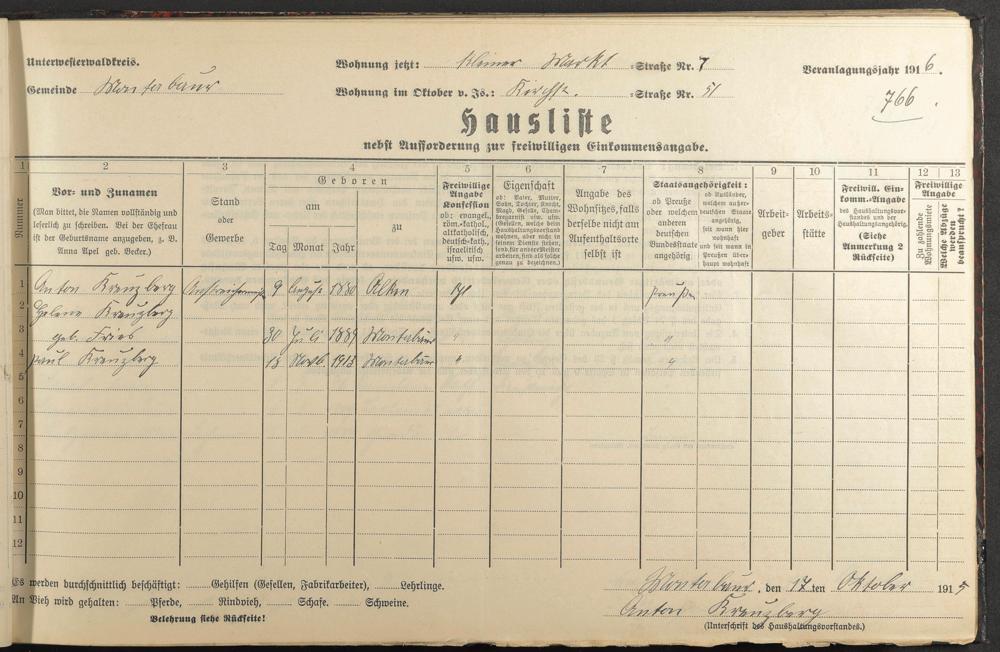 Unterwesterwaldkreis.
Wohnung jetzt: Kleiner Markt =Straße Nr. 7
Veranlagungsjahr 1916.
Gemeinde Montabaur
Wohnung im Oktober v. Js.: Kirchstr. =Straße Nr. 51
766
Hausliste
nebst Aufforderung zur freiwilligen Einkommensangabe.
1 2 3 4 5 6 7 8 9 10 11 12 13
Nummer
Vor- und Zunamen
(Man bittet, die Namen vollständig und
leserlich zu schreiben. Bei der Ehefrau
ist der Geburtsname anzugeben, z. B.
Anna Apel geb. Becker.)
Stand
oder
Gewerbe
Geboren
am
Tag Monat Jahr
zu
Freiwillige
Angabe
Konfession
ob: evangel.,
röm.-kathol.,
altkatholisch,
deutsch-kath.,
israelitisch
usw. usw.
Eigenschaft
ob: Vater, Mutter,
Sohn, Tochter, Knecht,
Magd, Geselle, Cham-
bregarnist usw. usw.
(Gesellen, welche beim
Haushaltungsvorstand
wohnen, aber nicht in
seinem Dienste stehen,
sond. für andere Meister
arbeiten, sind als solche
genau zu bezeichnen.)
Angabe des
Wohnsitzes, falls
derselbe nicht am
Aufenthaltsorte
selbst ist
Staatsangehörigkeit:
ob Preuße
oder welchem
anderen
deutschen
Bundesstaate
angehörig
ob Ausländer,
welchem außer-
deutschen Staate
angehörig,
seit wann hier
wohnhaft
und seit wann in
Preußen über-
haupt wohnhaft
Arbeit-
geber
Arbeits-
stätte
Freiwill. Ein-
komm.-Angabe
des Haushaltungsvor-
standes und der
Haushaltungsangehörig.
(Siehe
Anmerkung 2
Rückseite)
Freiwillige
Angabe
Zu zahlende
Wohnungsmiete
Welche Abzüge
werden
beansprucht?
1 Anton Kreuzberg 9 August 1880 Alken Preuße
2 Helene Kreuzberg
3 geb. Fries 30 Juli 1889 Montabaur " "
4 Paul Kreuzberg 15 Novb. 1913 Montabaur " "
5
6
7
8
9
10
11
12
Es werden durchschnittlich beschäftigt: Gehilfen (Gesellen, Fabrikarbeiter), Lehrlinge.
Montabaur, den 17ten Oktober 1915
An Vieh wird gehalten: Pferde, Rindvieh, Schafe. Schweine.
Anton Kreuzberg
Belehrung siehe Rückseite!
(Unterschrift des Haushaltungsvorstandes.)